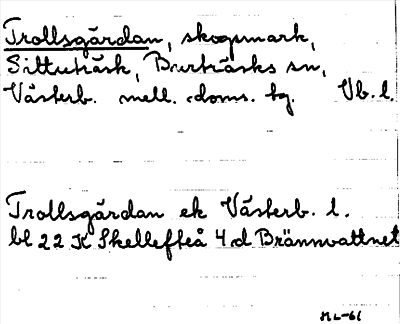 Trollsgårdan, skogsmark,
Sittuträsk, Burträsks sn,
Västerb. mell. doms. tg. Vb. l.
Trollsgårdan ek Västerb. l.
bl 22 K Skellefteå 4 d Brännvattnet
ML-61